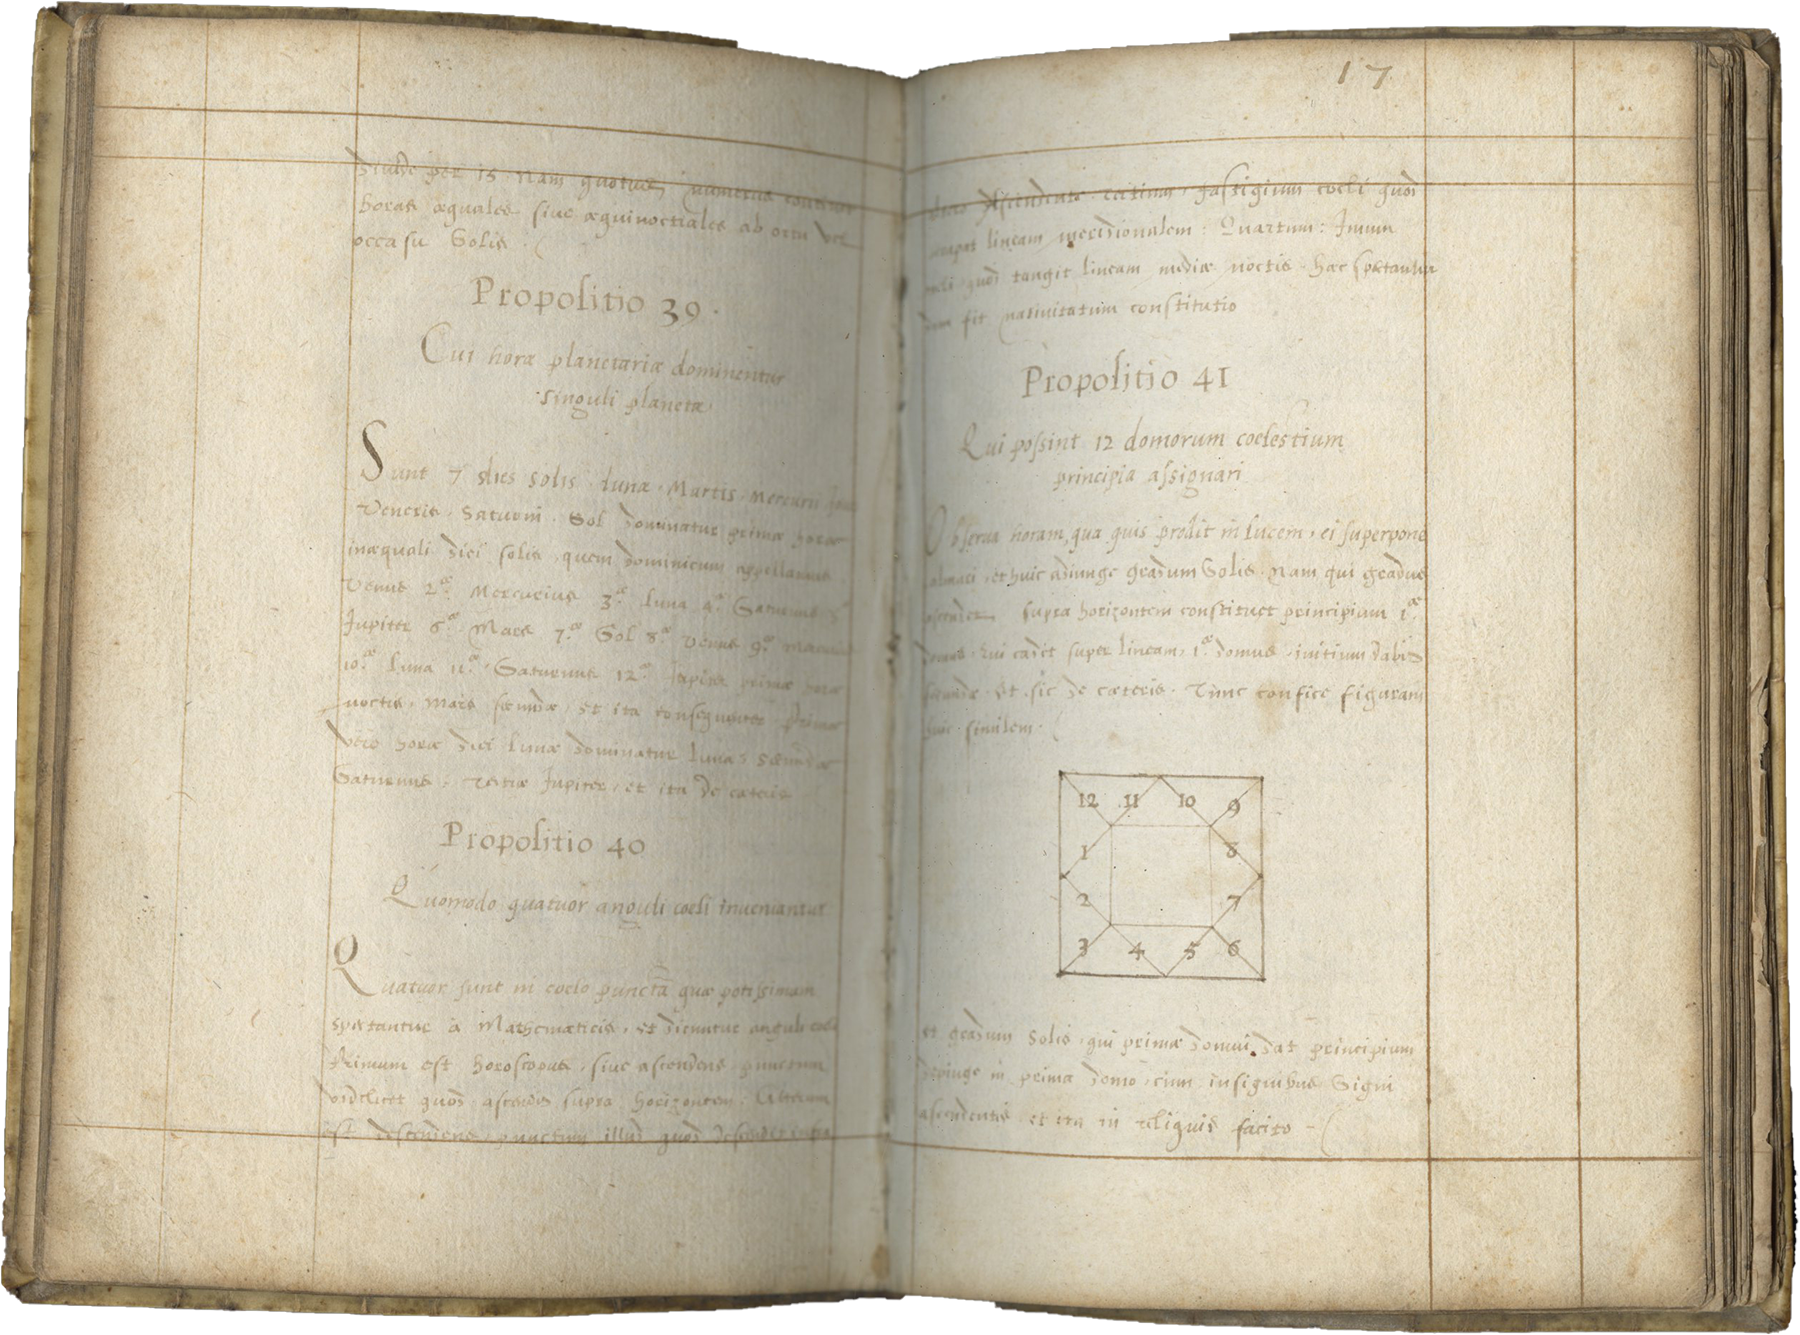 Diuide per 15. Nam quotus numerus continet
horas æquales siue æquinoctiales ab ortu vel
occasu Solis.
Propositio 39.
Cui horæ planetariæ dominentur
singuli planetæ
Sunt 7 dies Solis. Lunæ. Martis. Mercurii
Veneris. Saturni. Sol dominatur primæ horæ
inæquali diei solis, quem dominicum appellamus
Venus 2æ. Mercurius 3æ. Luna 4æ Saturnus 5æ
Jupiter 6æ. Mars 7æ. Sol 8æ Venus 9æ
10æ. Luna 11æ. Saturnus 12æ Jupiter primæ horæ
noctis, Mars secundæ, et ita consequenter. Primæ
vero horæ diei Lunæ dominatur Luna, secundæ
Saturnus. Tertiæ Jupiter, et ita de cæteris
Propositio 40
Quomodo quatuor anguli coeli inveniantur
Quatuor sunt in coelo puncta quæ potissimum
spectantur à Mathematicis, et dicuntur anguli coeli
Primum est horoscopus, siue ascendens, punctum
videlicet quod ascendit supra horizontem. Alterum
est descendens punctum illud quod descendit infra
17
fastigium coeli quod
lineam meridionalem: Quartum: Imum
coeli quod tangit lineam mediæ noctis. hæc spectantur
dum fit natiuitatum constitutio
Propositio 41
Qui possint 12 domorum coelestium
principia assignari
Obserua horam, qua quis prodit in lucem, ei superpone
et huic adiunge gradum Solis. Nam qui gradus
ascendet supra horizontem constituet principium 1æ
domus. Qui cadit super lineam, 1æ domus, initium dabit
secundæ. et sic de cæteris. Tunc confice figuram
huic similem.
12 11 10 9
1 8
2 7
3 4 5 6
et gradum Solis, qui primæ domui dat principium
depinge in prima domo, cum insignibus Signi
ascendentis et ita in reliquis facito